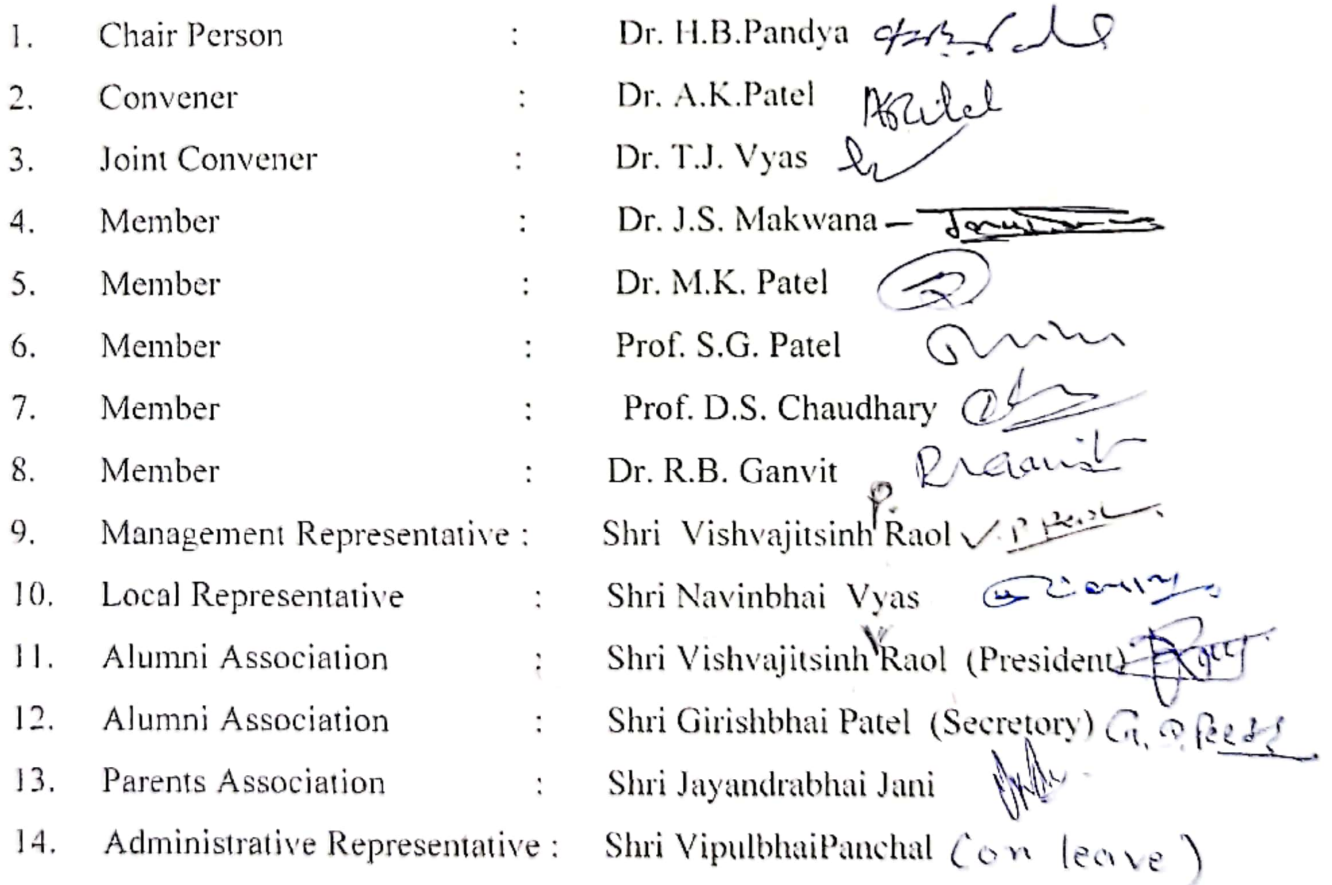 1. Chair Person : Dr. H.B.Pandya
2. Convener : Dr. A.K.Patel
3. Joint Convener : Dr. T.J. Vyas
4. Member : Dr. J.S. Makwana –
5. Member : Dr. M.K. Patel
6. Member : Prof. S.G. Patel
7. Member : Prof. D.S. Chaudhary
8. Member : Dr. R.B. Ganvit
9. Management Representative : Shri Vishvajitsinh P. Raol
10. Local Representative : Shri Navinbhai Vyas
11. Alumni Association : Shri Vishvajitsinh V Raol (President)
12. Alumni Association : Shri Girishbhai Patel (Secretory)
13. Parents Association : Shri Jayandrabhai Jani
14. Administrative Representative : Shri VipulbhaiPanchal (on leave)